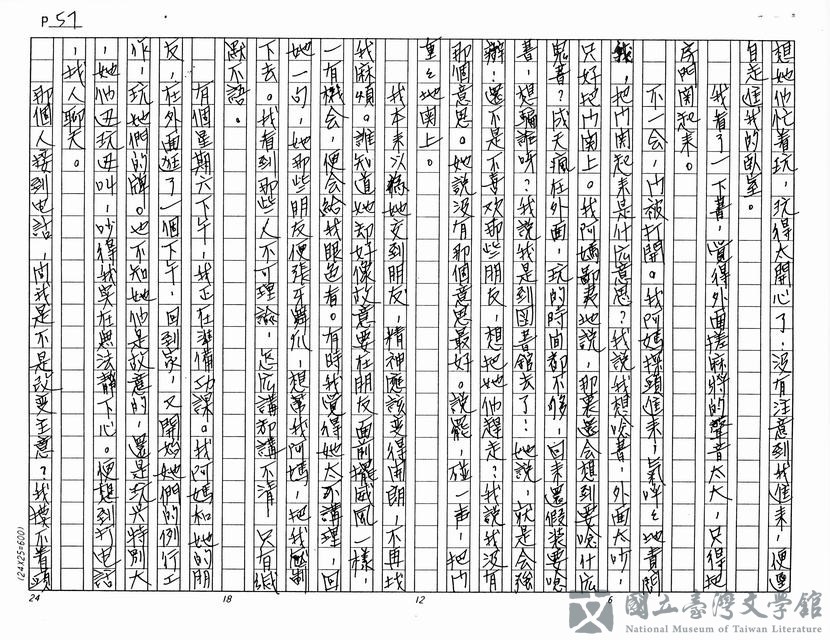 P 57
想她们忙着玩，玩得太開心了，沒有注意到我進來，便逕
自走進我的臥室。
我看了一下書，覺得外面搓麻將的聲音太大，只得把
房門関起來。
不一会，门被打開。我阿媽探頭進來，氣呼々地責問
我，把门関起来是什広意思？我說我想唸書，外面太吵，
只好把门関上。我阿媽鄙夷地說，那裏還会想到要唸什広
鬼書？成天瘋在外面，玩的時間都不够，回来還假裝要唸
書，想騙誰呀？我說我是到図書館去了，她說，就是会強
辯，還不是不喜欢那些朋友，想把她们趕走？我說我沒有
那個意思。她說沒有那個意思最好。說罷，碰一声，把门
重々地関上。
我本来以為她交到朋友，精神應該变得開朗，不再找
我麻煩。誰知道她却好像故意要在朋友面前擺威風一樣，
一有機会，便会給我眼色看。有時我覺得她太不講理，回
她一句，她那些朋友便張牙舞爪，想幫我阿媽，把我壓制
下去。我看到那些人不可理諭，怎広講都講不清，只有緘
默不語。
有個星期六下午，我正在準備功課。我阿媽和她的朋
友，在外面逛了一個下午，回到家，又開始她們的例行工
作，玩她們的牌。也不知她们是故意的，還是玩兴特別大
，她们丑玩丑叫，吵得我実在無法静下心。便想到打电話
，找人聊天。
那個人接到电話，問我是不是改变主意？我摸不着頭
24 18 12 6
(24X25=600)
國立臺灣文學館
National Museum of Taiwan Literature